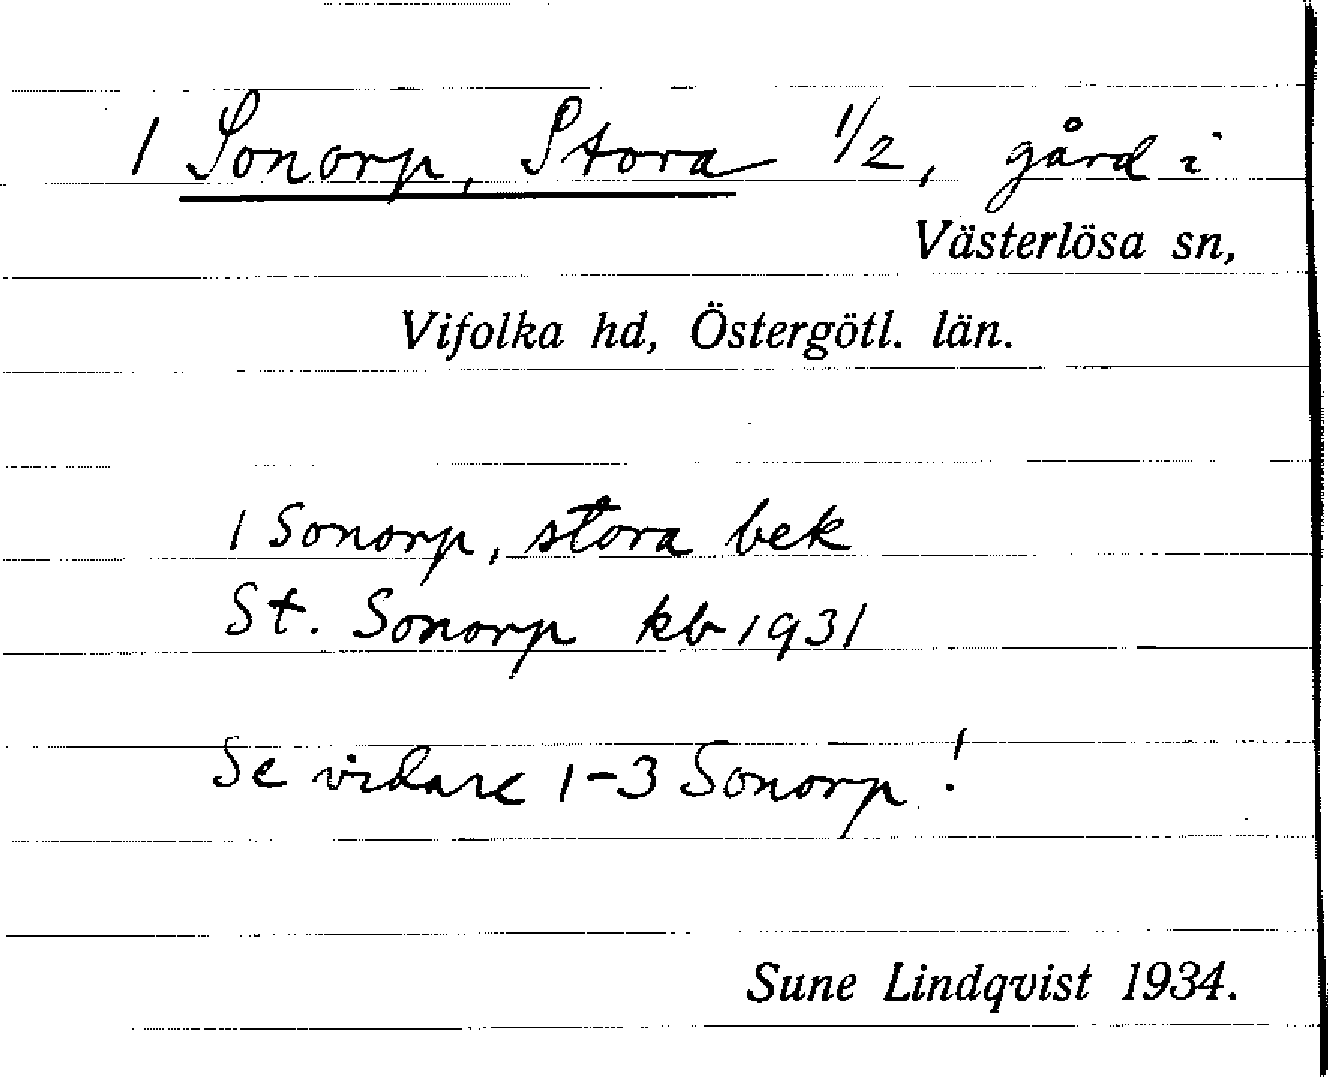 1 Sonorp, Stora 1/2, gård i
Västerlösa sn,
Vifolka hd, Östergötl. län.
1 Sonorp, stora bek
St. Sonorp kb 1931
Se vidare 1-3 Sonorp!
Sune Lindqvist 1934.